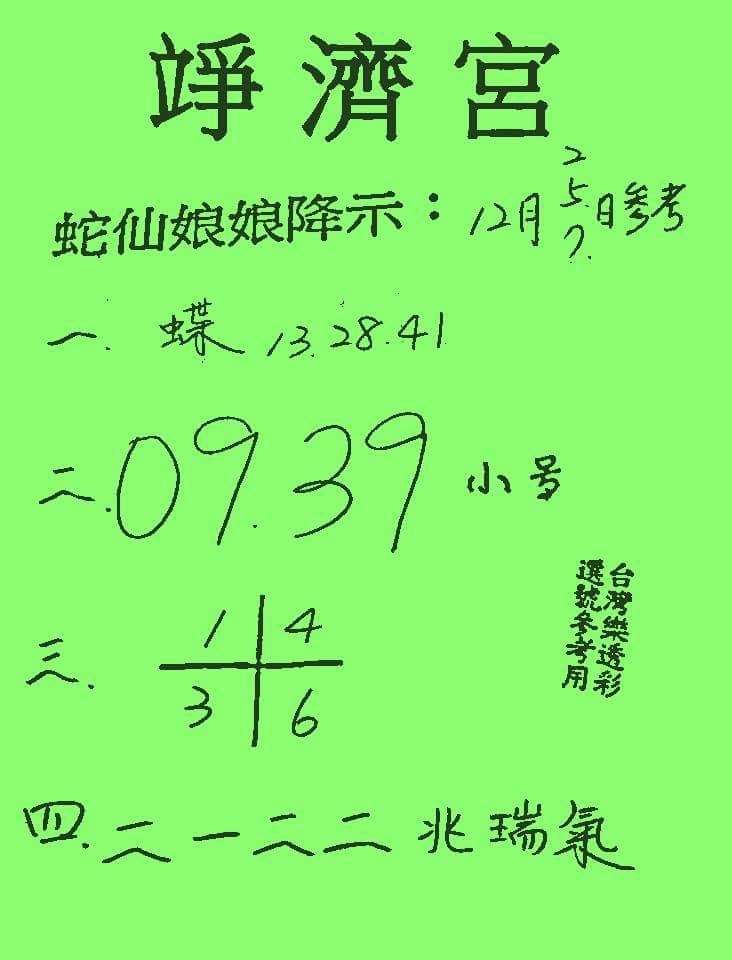 竫濟宮
蛇仙娘娘降示：12月2.5.7.日参考
一. 蝶 13.28.41
二. 09.39 小号
三. 1 4
3 6
台灣樂透彩
選號參考用
四. 二一二二兆瑞氣